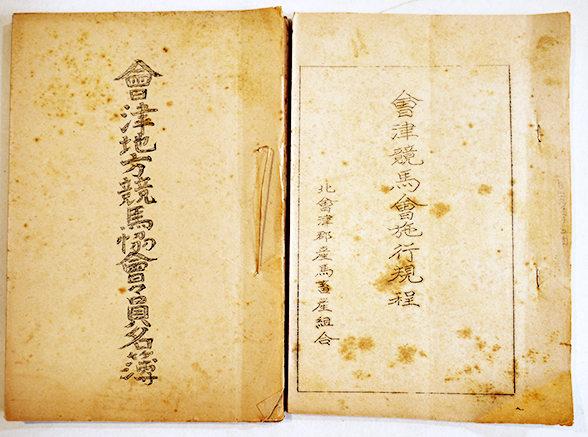 會津地方競馬協會々員名簿
會津競馬會施行規程
北會津郡産馬畜産組合